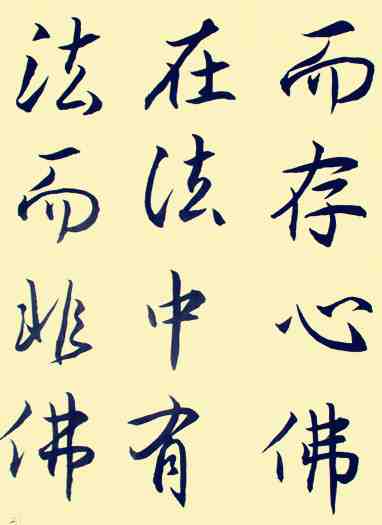 而存心佛
在法中有
法而非佛